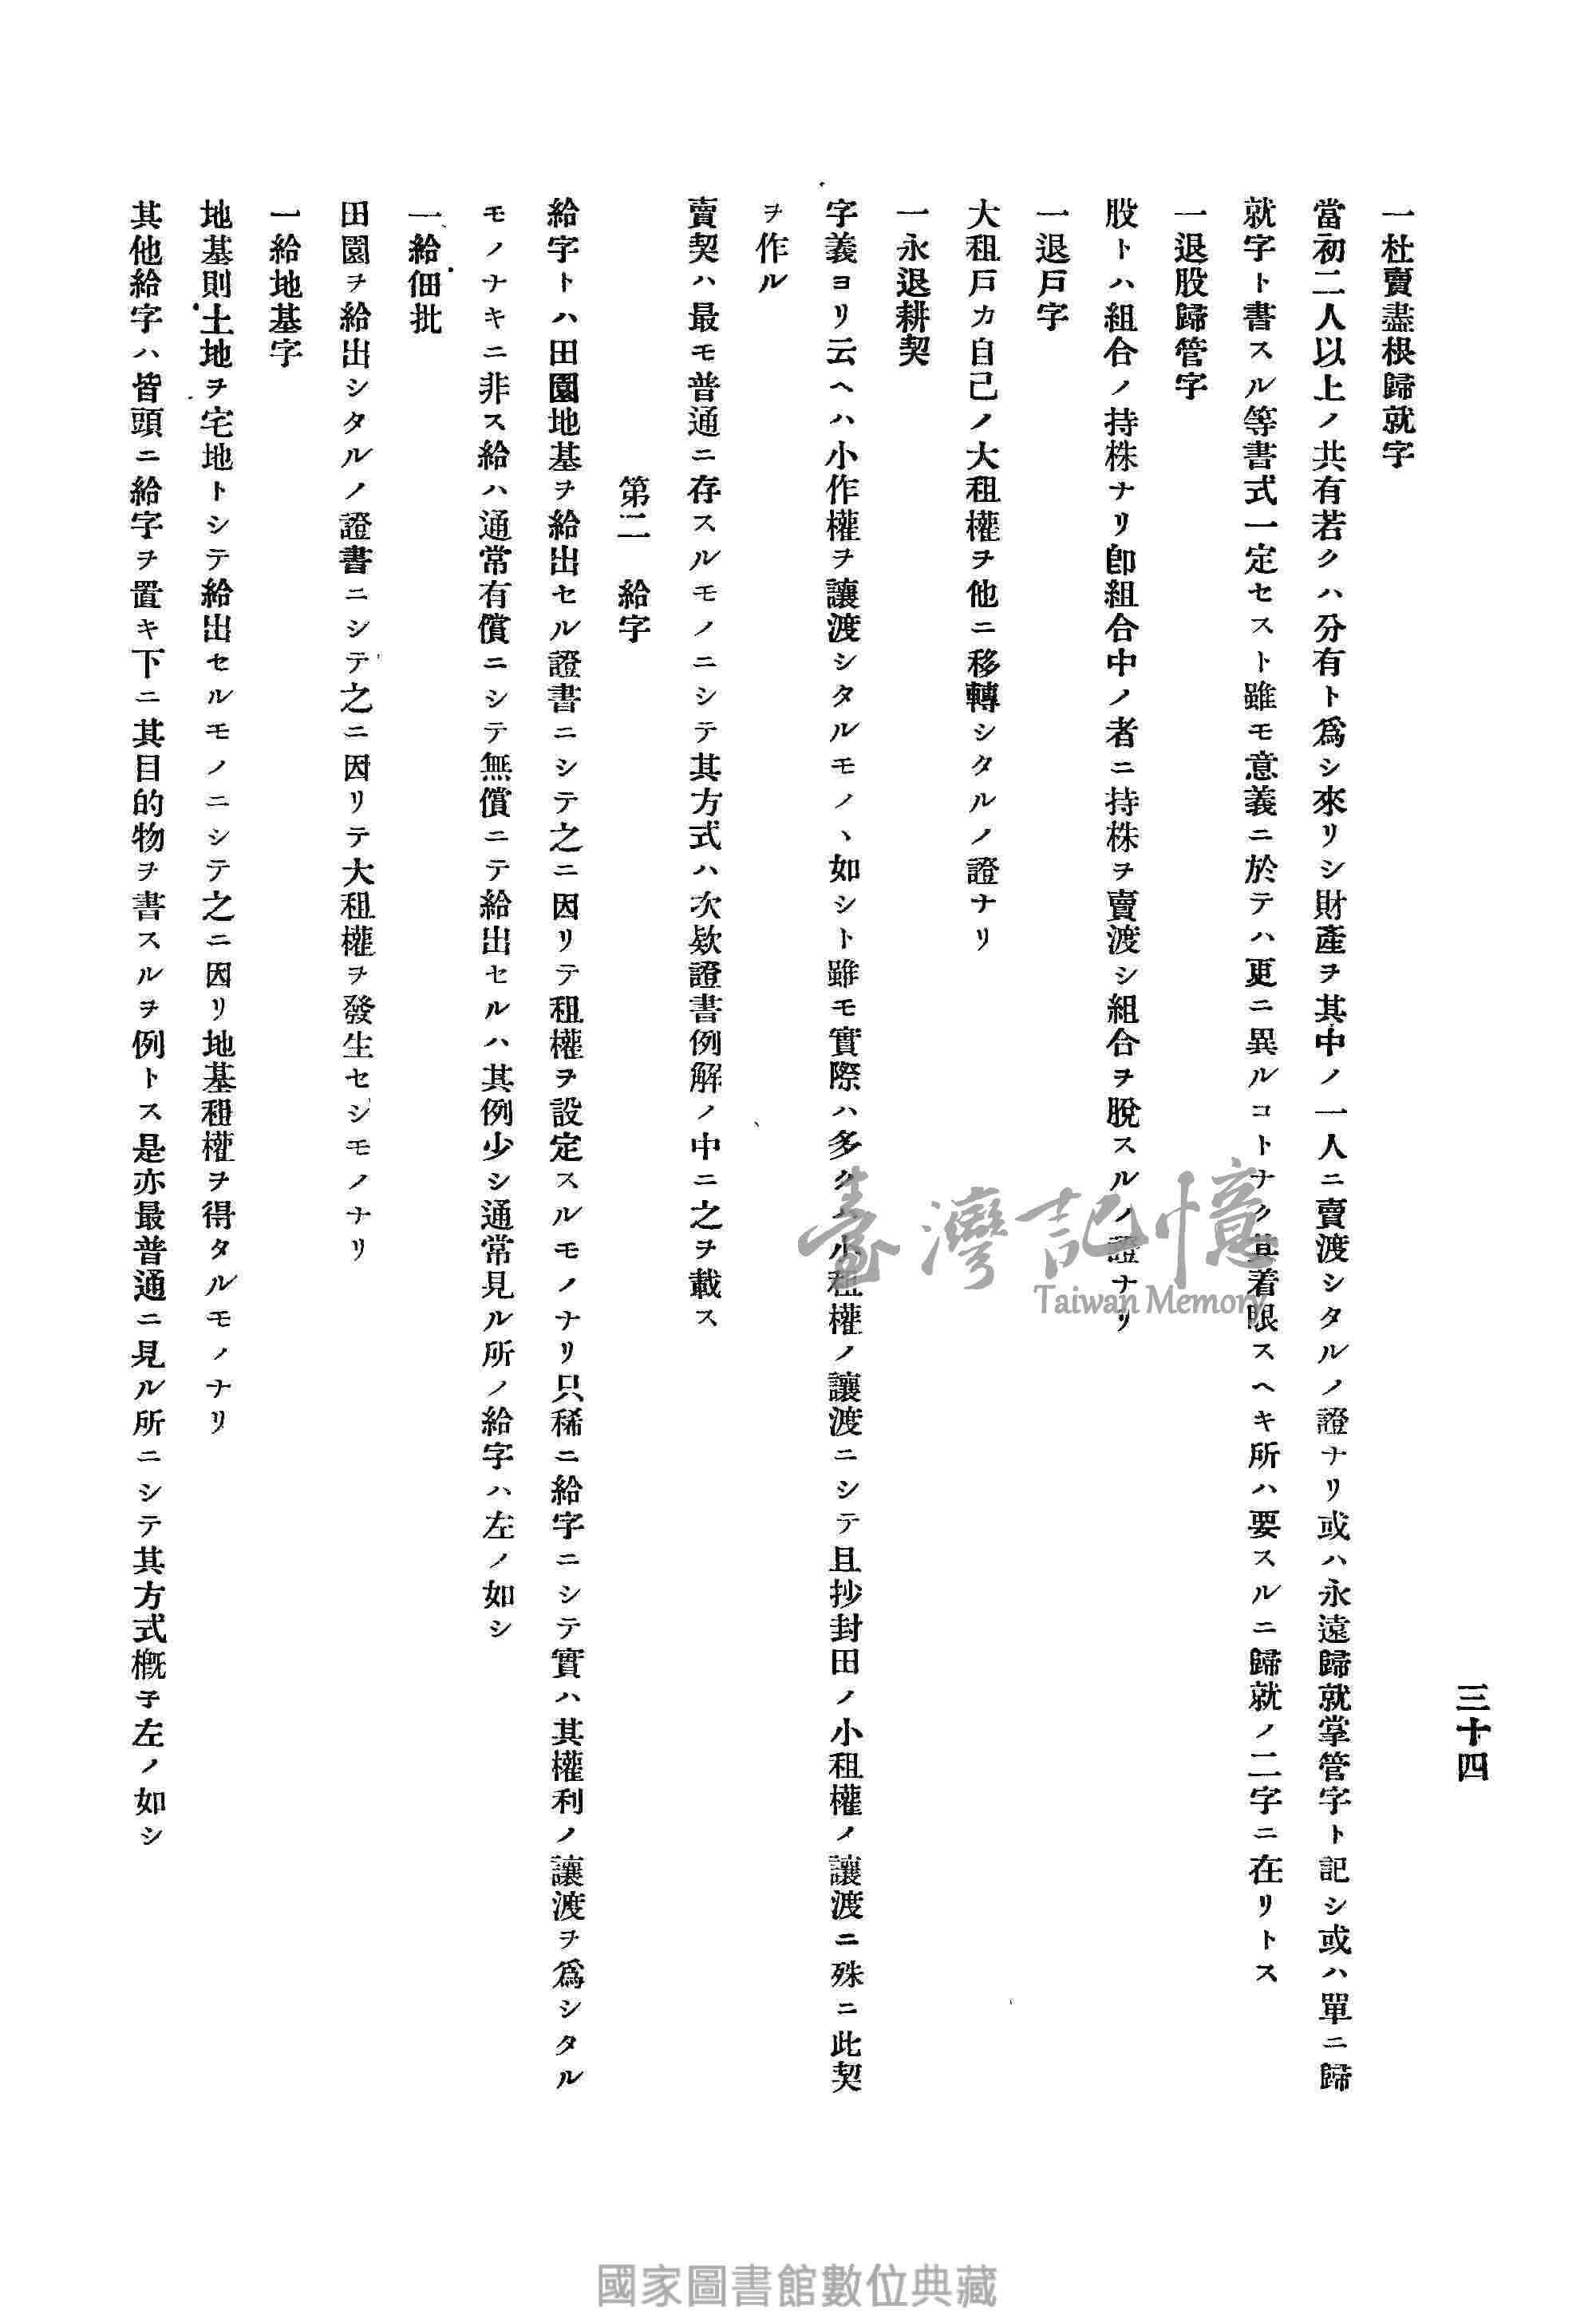 三十四
一杜賣盡根歸就字
當初二人以上ノ共有若クハ分有ト爲シ來リシ財產ヲ其中ノ一人ニ賣渡シタルノ證ナリ或ハ永遠歸就掌管字ト記シ或ハ單ニ歸
就字ト書スル等書式一定セスト雖モ意義ニ於テハ更ニ異ルコトナク其着眼スヘキ所ハ要スルニ歸就ノ二字ニ在リトス
一退股歸管字
股トハ組合ノ持株ナリ卽組合中ノ者ニ持株ヲ賣渡シ組合ヲ脫スルノ證ナリ
一退戶字
大租戶カ自己ノ大租權ヲ他ニ移轉シタルノ證ナリ
一永退耕契
字義ヨリ云ヘハ小作權ヲ讓渡シタルモノヽ如シト雖モ實際ハ多クハ小租權ノ讓渡ニシテ且抄封田ノ小租權ノ讓渡ニ殊ニ此契
ヲ作ル
賣契ハ最モ普通ニ存スルモノニシテ其方式ハ次欵證書例解ノ中ニ之ヲ載ス
第二　給字
給字トハ田園地基ヲ給出セル證書ニシテ之ニ因リテ租權ヲ設定スルモノナリ只稀ニ給字ニシテ實ハ其權利ノ讓渡ヲ爲シタル
モノナキニ非ス給ハ通常有償ニシテ無償ニテ給出セルハ其例少シ通常見ル所ノ給字ハ左ノ如シ
一給佃批
田園ヲ給出シタルノ證書ニシテ之ニ因リテ大租權ヲ發生セシモノナリ
一給地基字
地基則土地ヲ宅地トシテ給出セルモノニシテ之ニ因リ地基租權ヲ得タルモノナリ
其他給字ハ皆頭ニ給字ヲ置キ下ニ其目的物ヲ書スルヲ例トス是亦最普通ニ見ル所ニシテ其方式槪子左ノ如シ
臺灣記憶
Taiwan Memory
國家圖書館數位典藏